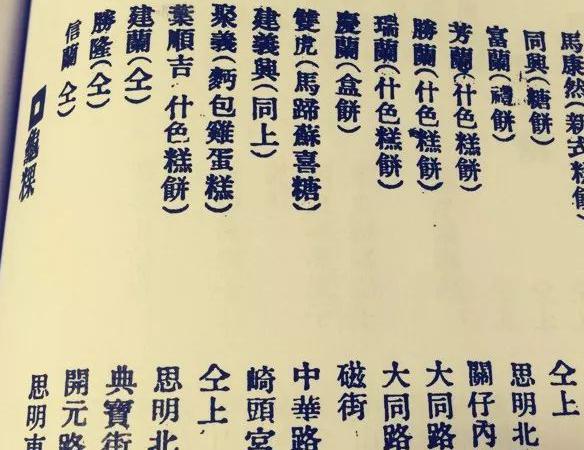 馬康然(新式
同興(糖餅) 仝上
富蘭(禮餅) 思明北
芳蘭(什色糕餅) 關仔內
勝蘭(什色糕餅) 大同路
瑞蘭(什色糕餅) 大同路
慶蘭(盒餅) 磁街
雙虎(馬蹄蘇喜糖) 中華路
建義興(同上) 崎頭宮
聚義(麪包雞蛋糕) 仝上
葉順吉 什色糕餅) 思明北
建蘭(仝) 典寶街
勝隆(仝) 開元路
信蘭 仝) 思明東
龜粿